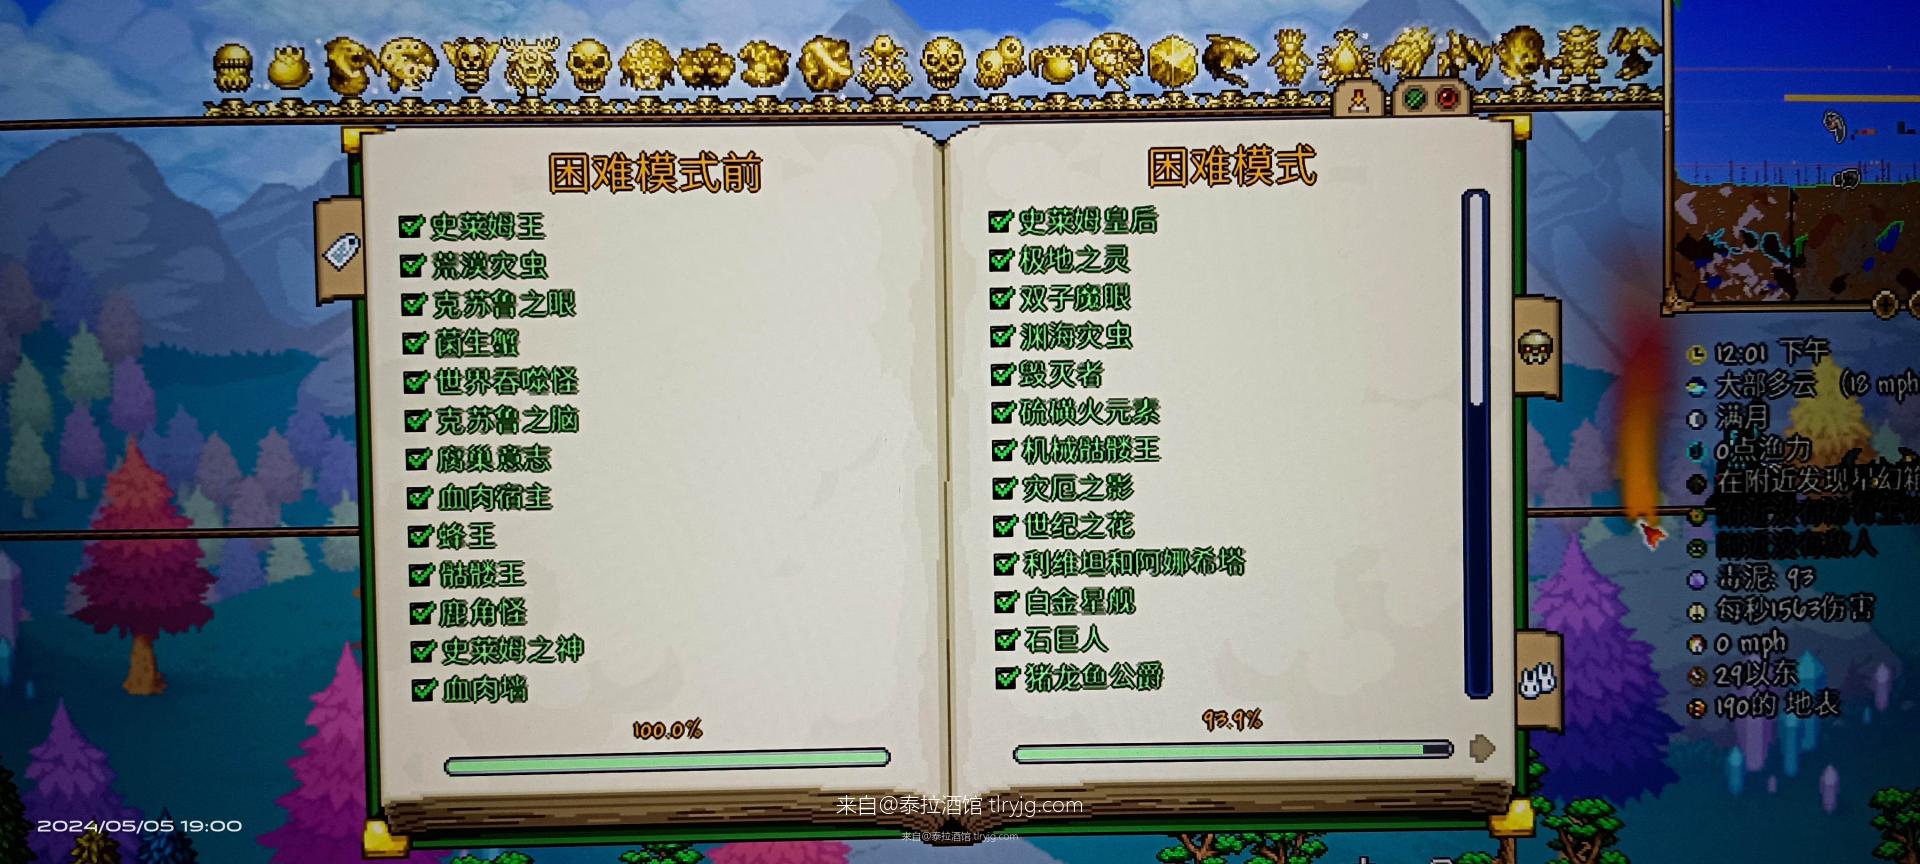 困难模式前
史莱姆王
荒漠灾虫
克苏鲁之眼
菌生蟹
世界吞噬怪
克苏鲁之脑
腐巢意志
血肉宿主
蜂王
骷髅王
鹿角怪
史莱姆之神
血肉墙
100.0%
困难模式
史莱姆皇后
极地之灵
双子魔眼
渊海灾虫
毁灭者
硫磺火元素
机械骷髅王
灾厄之影
世纪之花
利维坦和阿娜希塔
白金星舰
石巨人
猪龙鱼公爵
93.9%
12:01 下午
大部多云 (18 mph
满月
0点渔力
在附近发现星幻箱
附近没有敌人
毒泥: 93
每秒1563伤害
0 mph
29以东
190的 地表
来自@泰拉酒馆 tlryjg.com
来自@泰拉酒馆 tlryjg.com
2024/05/05 19:00